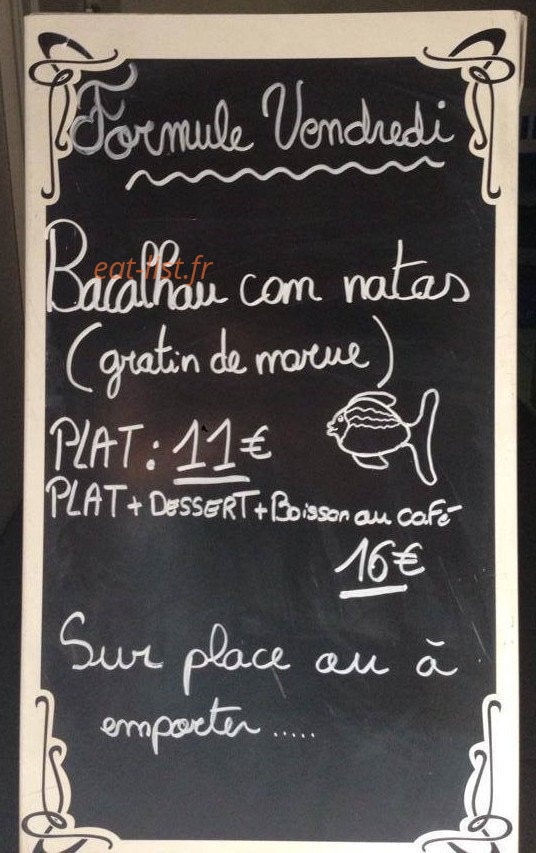 Formule Vendredi
eat-list.fr
Bacalhau com natas
(gratin de morue)
PLAT : 11€
PLAT + DESSERT + Boisson ou café
16€
Sur place ou à
emporter.....